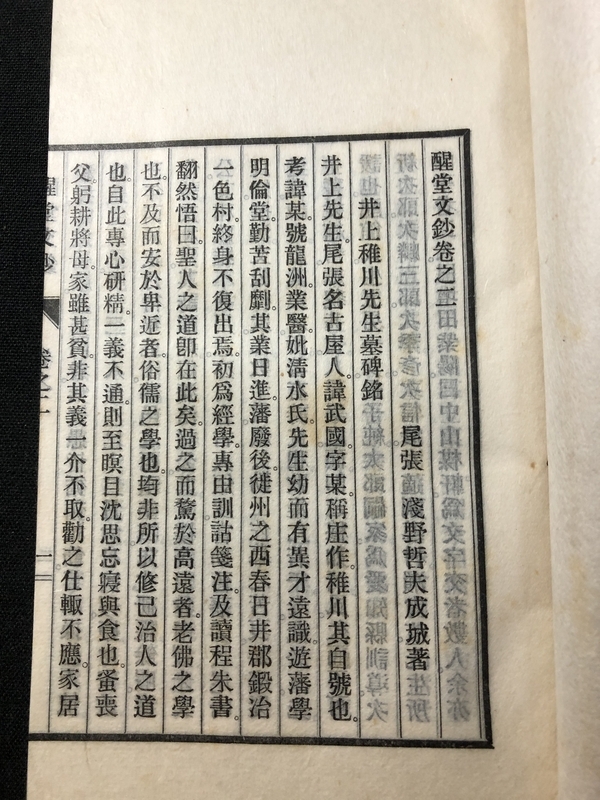 醒堂文鈔卷之二
尾張 淺野哲夫成城著
井上稚川先生墓碑銘
井上先生。尾張名古屋人。諱武國。字某。稱庄作。稚川其自號也。
考諱某。號龍洲。業醫。妣清水氏。先生幼而有異才遠識。遊藩學
明倫堂。勤苦刮劘。其業日進。藩廢後。徙州之西春日井郡鍛冶
一色村。終身不復出焉。初爲經學。專由訓詁箋注。及讀程朱書。
翻然悟曰。聖人之道卽在此矣。過之而騖於高遠者。老佛之學
也。不及而安於卑近者。俗儒之學也。均非所以修己治人之道
也。自此專心研精。一義不通。則至暝目沈思忘寢與食也。蚤喪
父。躬耕將母。家雖甚貧。非其義一介不取。勸之仕輙不應。家居
醒堂文鈔 卷之二 一